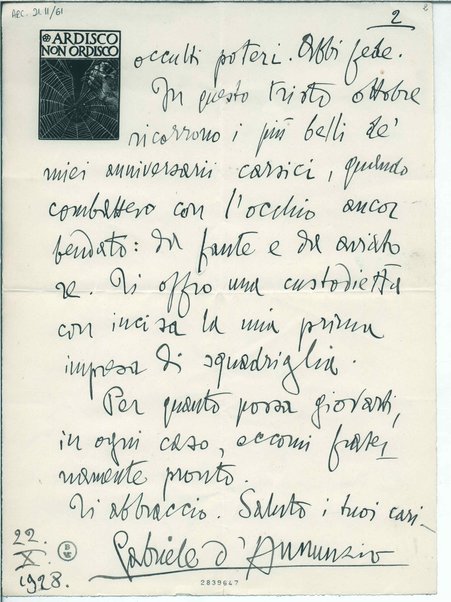 ARC. 21.II/61
2
2
ARDISCO
NON ORDISCO
occulti poteri. Abbi fede.
In questo tristo ottobre
ricorrono i più belli de'
miei anniversarii carsici, quando
combattevo con l'occhio ancor
bendato: da fante e da aviato
re. Ti offro una custodietta
con incisa la mia prima
impresa di squadriglia.
Per quanto possa giovarti,
in ogni caso, eccomi frater
namente pronto.
Ti abbraccio. Saluto i tuoi cari.
22.
X.
1928.
Gabriele d'Annunzio
2839647